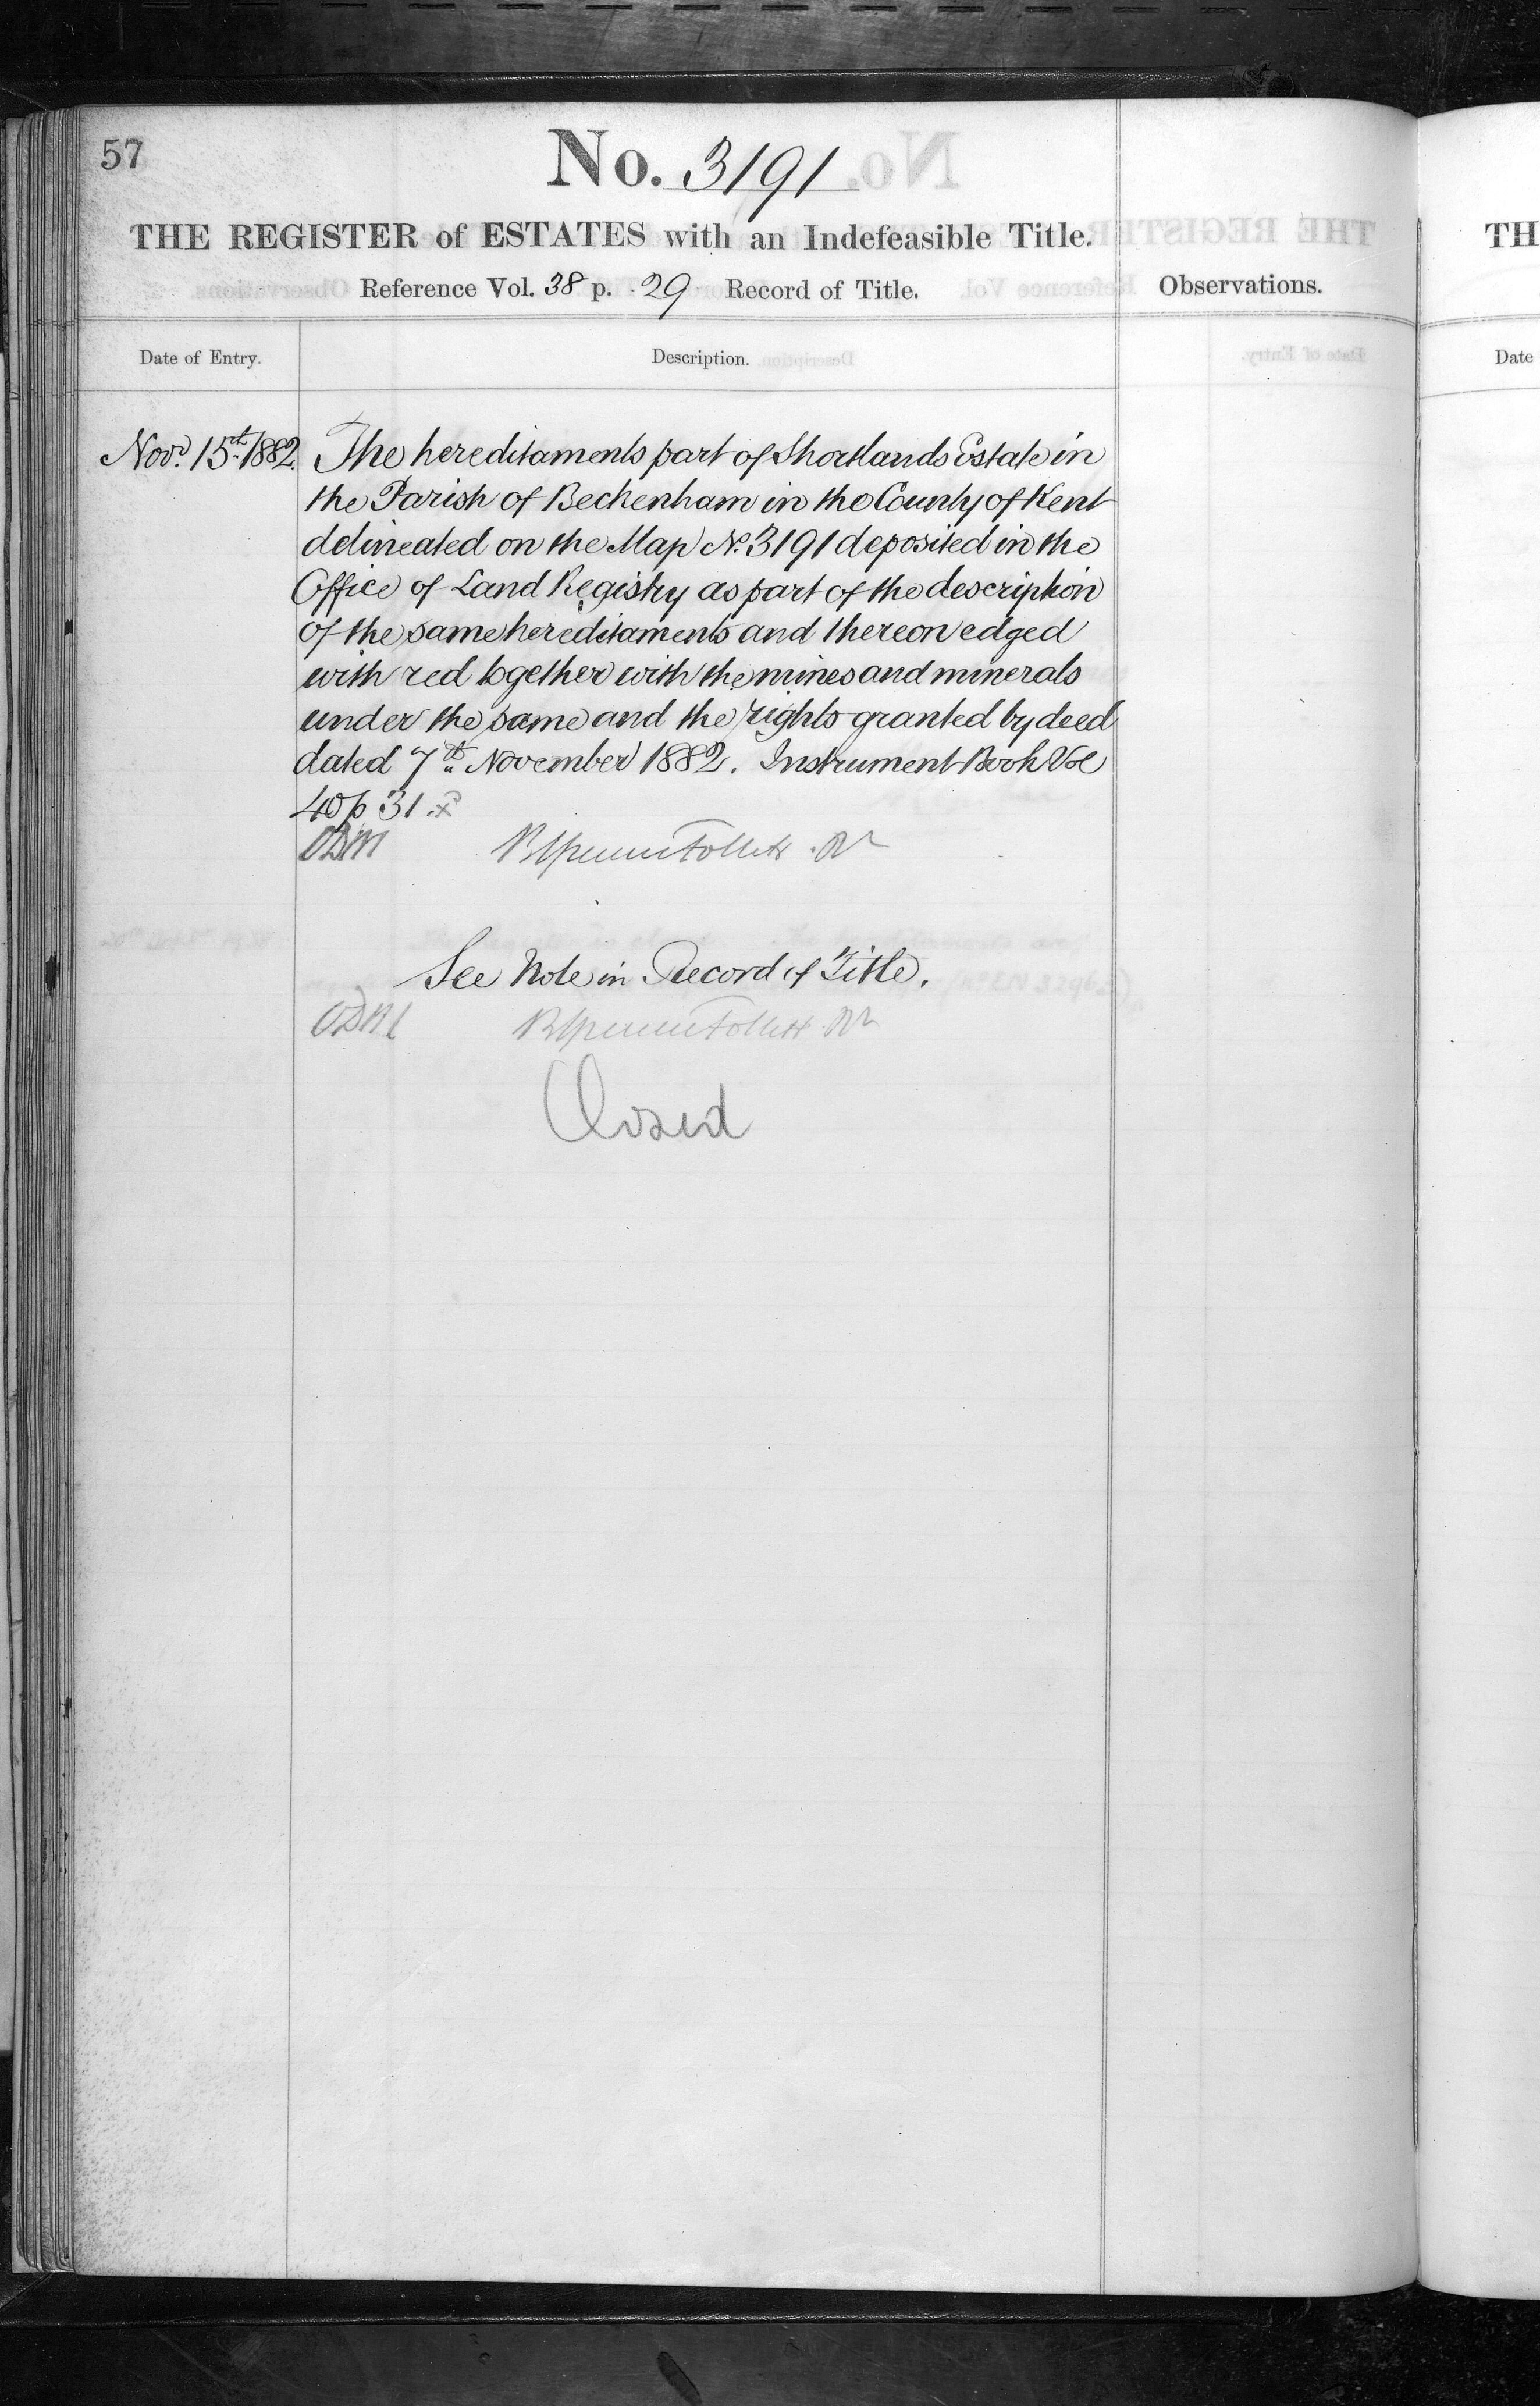 57
No. 3191
THE REGISTER of ESTATES with an Indefeasible Title.
Reference Vol. 38 p. 29 Record of Title.
Observations.
Date of Entry.
Description.
Novr. 15th 1882.
The hereditaments part of Shortlands Estate in
the Parish of Beckenham in the County of Kent
delineated on the Map No. 3191 deposited in the
Office of Land Registry as part of the description
of the same hereditaments and thereon edged
with red together with the mines and minerals
under the same and the rights granted by deed
dated 7th November 1882. Instrument Book Vol
40 p 31
ODM
Follett
See Note in Record of Title.
ODM
Follett
Closed
TH
Date